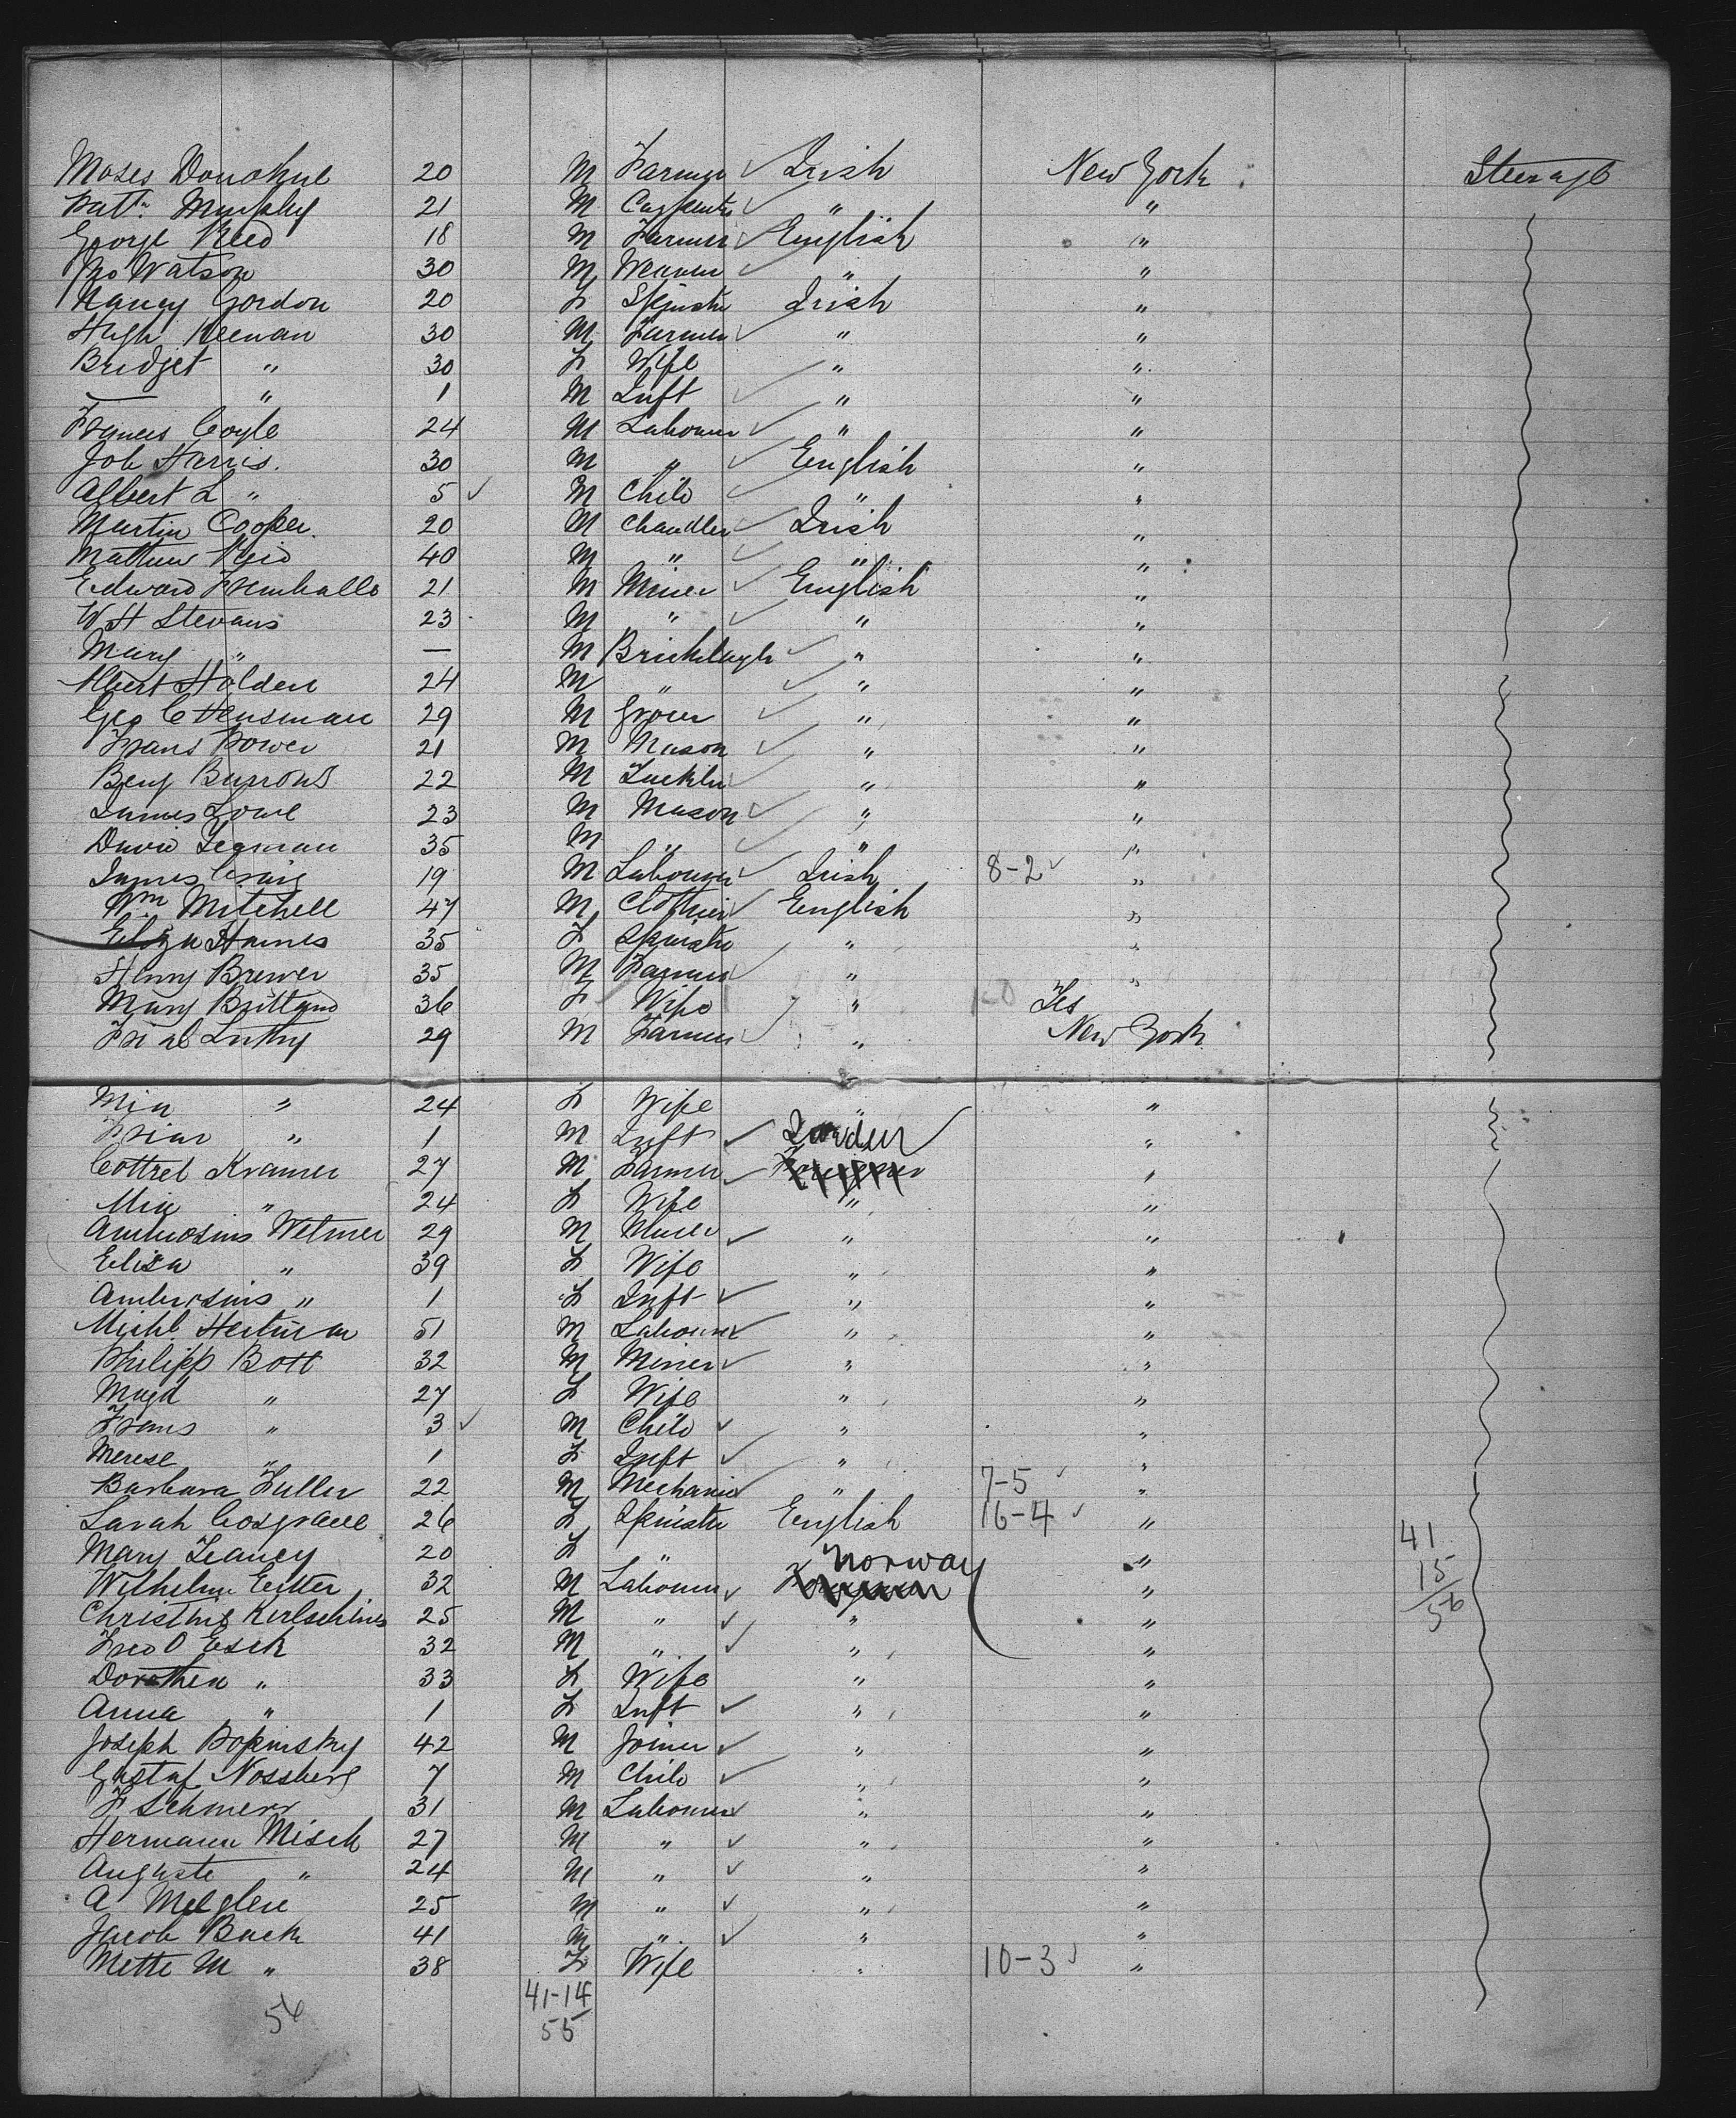 Moses Donohue 20 M Farmer ✓ Irish New York Steerage
Patk. Murphy 21 M Carpenter ✓ " "
George Reed 18 M Farmer ✓ English "
Jno Watson 30 M Weaver ✓ " "
Nancy Gordon 20 F Spinster Irish "
Hugh Keenan 30 M Farmer ✓ " "
Bridget " 30 F Wife " "
— " 1 M Inft ✓ " "
Frances Coyle 24 M Labourer ✓ " "
Job Harris. 30 M " ✓ English "
Albert L " 5 ✓ M Child ✓ " "
Martin Cooper. 20 M Chandler ✓ Irish "
Mathew Reid 40 M " ✓ " "
Edward 21 M Miner ✓ English "
W H Stevans 23 M " ✓ " "
Mary " — M ✓ " "
Albert Holden 24 M " ✓ " "
Geo C Hensman 29 M Grocer ✓ " "
Frans Power 21 M Mason ✓ " "
Benj Burrows 22 M ✓ " "
James Lowe 23 M Mason ✓ " "
David 35 M " ✓ " "
James Craig 19 M Labourer ✓ Irish 8-2 ✓ "
Wm Mitchell 47 M Clothier ✓ English "
Eliza Hames 35 F Spinster " "
Henry Brewer 35 M Farmer ✓ " "
Mary Brittand 36 F Wife " Yes
Luthy 29 M Farmer ✓ " New York
Min " 24 F Wife " "
" 1 M Inft ✓ "
Cottrel Kramer 27 M Farmer ✓ "
Min " 24 F Wife " "
Ambrosius Wetmer 29 M ✓ " "
Elisa " 39 F Wife " "
Ambrosius " 1 F Inft ✓ " "
Michl. 51 M Labourer ✓ " "
Philipp Bott 32 M Miner ✓ " "
Magd " 27 F Wife " "
Frans " 3 ✓ M Child ✓ " "
Merese " 1 F Inft ✓ " "
Barbara Fuller 22 M Mechanic ✓ " 7-5 ✓ "
Sarah Cosgrave 26 F Spinster English 16-4 ✓ "
Mary Leancy 20 F " " 41
Wilhelm Eitter 32 M Labourer ✓ Norway " 15
Christine 25 M " ✓ " " 56
Fred O Esch 32 M " ✓ " "
Dorothea " 33 F Wife " "
Anna " 1 F Inft ✓ " "
Joseph Bopinsky 42 M Joiner ✓ " "
Gustaf Nossberg 7 M Child ✓ " "
F Schmerr 31 M Labourer ✓ " "
Hermann Misch 27 M " ✓ " "
Auguste " 24 M " ✓ " "
A Melglen 25 M " ✓ " "
Jacob Buck 41 M " ✓ " "
Mette M " 38 F Wife " 10-3 ✓ "
56 41-14
55